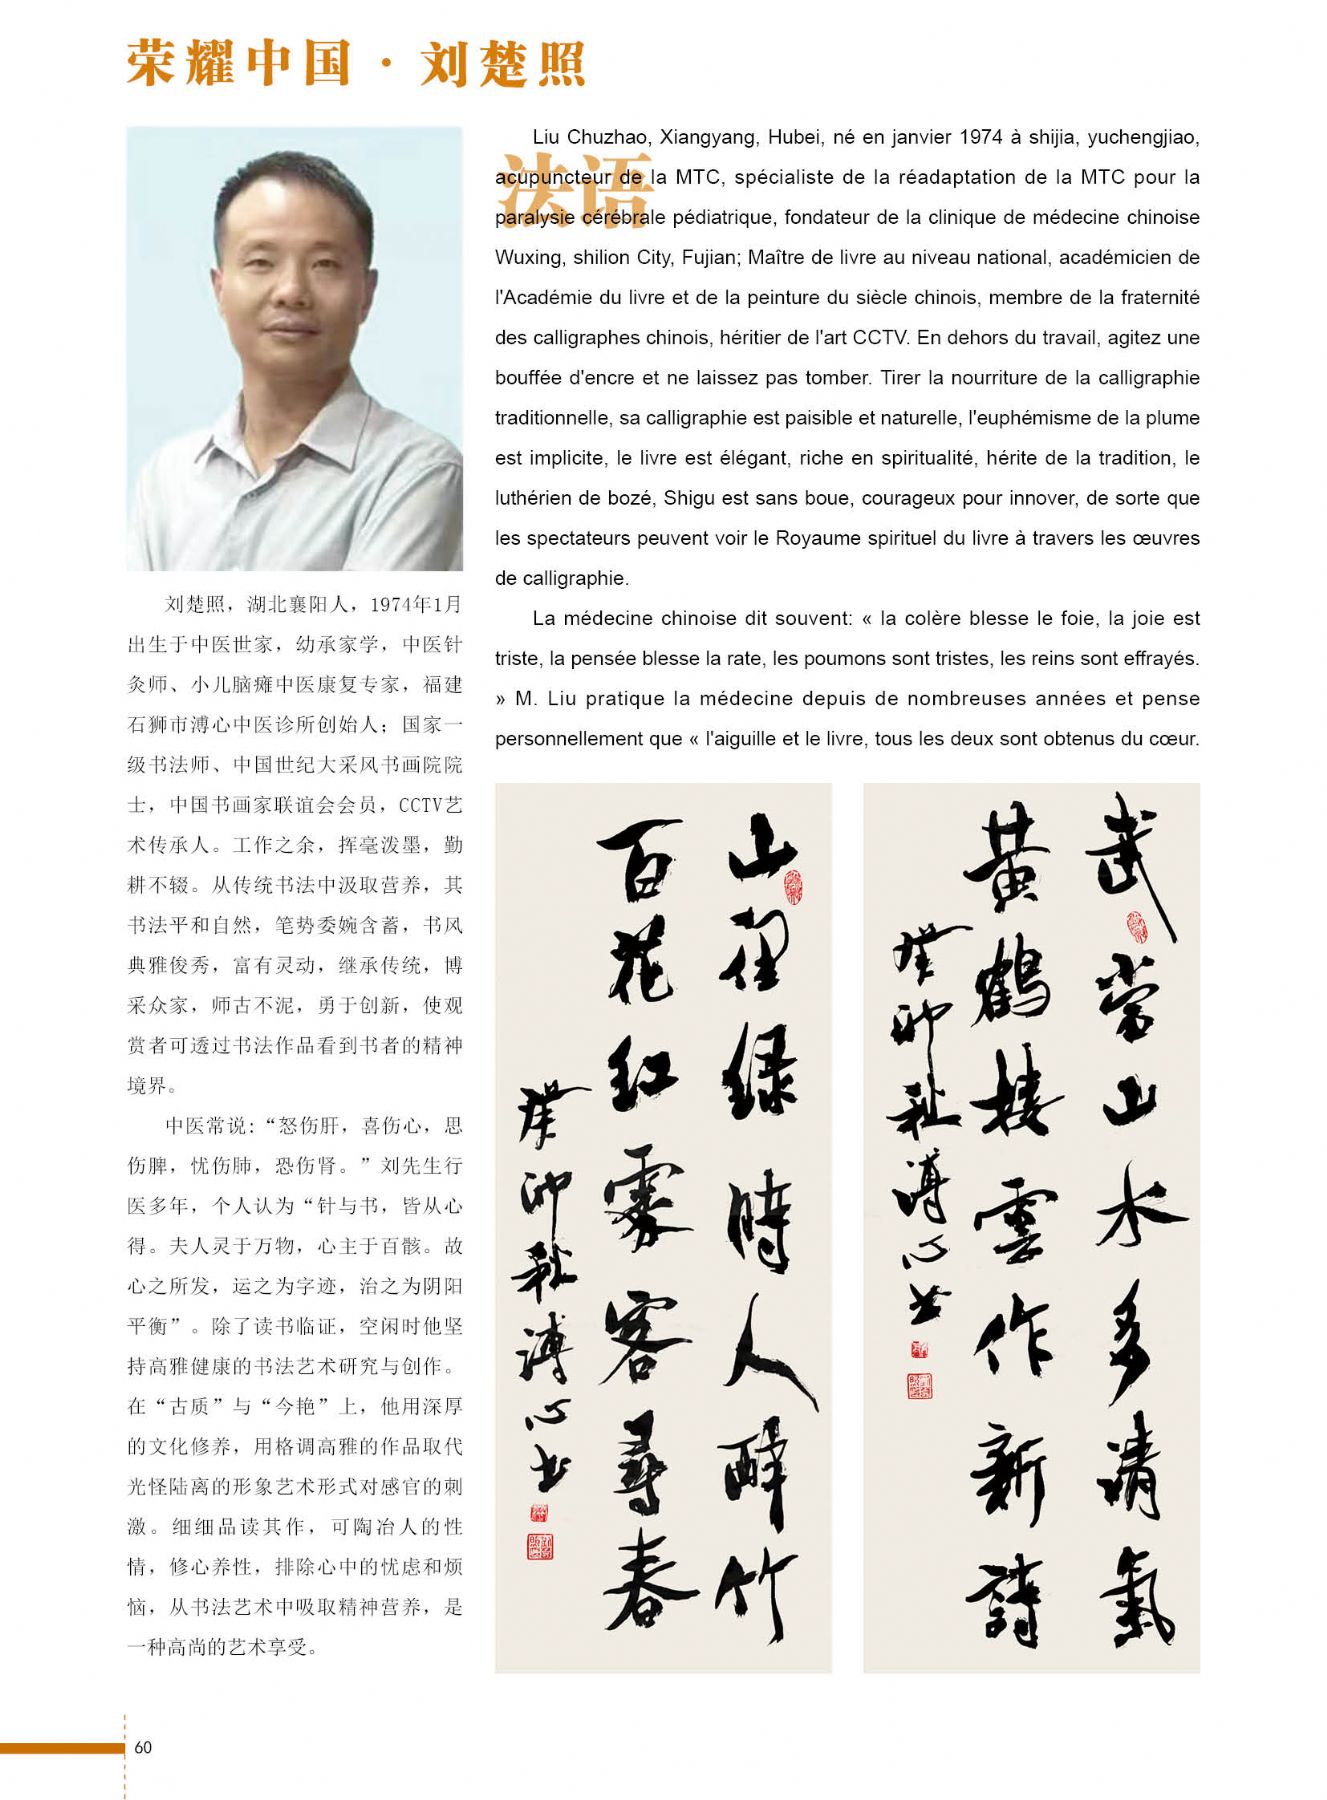 荣耀中国·刘楚照
法语
Liu Chuzhao, Xiangyang, Hubei, né en janvier 1974 à shijia, yuchengjiao,
acupuncteur de la MTC, spécialiste de la réadaptation de la MTC pour la
paralysie cérébrale pédiatrique, fondateur de la clinique de médecine chinoise
Wuxing, shilion City, Fujian; Maître de livre au niveau national, académicien de
l'Académie du livre et de la peinture du siècle chinois, membre de la fraternité
des calligraphes chinois, héritier de l'art CCTV. En dehors du travail, agitez une
bouffée d'encre et ne laissez pas tomber. Tirer la nourriture de la calligraphie
traditionnelle, sa calligraphie est paisible et naturelle, l'euphémisme de la plume
est implicite, le livre est élégant, riche en spiritualité, hérite de la tradition, le
luthérien de bozé, Shigu est sans boue, courageux pour innover, de sorte que
les spectateurs peuvent voir le Royaume spirituel du livre à travers les œuvres
de calligraphie.
La médecine chinoise dit souvent: « la colère blesse le foie, la joie est
triste, la pensée blesse la rate, les poumons sont tristes, les reins sont effrayés.
» M. Liu pratique la médecine depuis de nombreuses années et pense
personnellement que « l'aiguille et le livre, tous les deux sont obtenus du cœur.
刘楚照，湖北襄阳人，1974年1月
出生于中医世家，幼承家学，中医针
灸师、小儿脑瘫中医康复专家，福建
石狮市溥心中医诊所创始人；国家一
级书法师、中国世纪大采风书画院院
士，中国书画家联谊会会员，CCTV艺
术传承人。工作之余，挥毫泼墨，勤
耕不辍。从传统书法中汲取营养，其
书法平和自然，笔势委婉含蓄，书风
典雅俊秀，富有灵动，继承传统，博
采众家，师古不泥，勇于创新，使观
赏者可透过书法作品看到书者的精神
境界。
中医常说：“怒伤肝，喜伤心，思
伤脾，忧伤肺，恐伤肾。”刘先生行
医多年，个人认为“针与书，皆从心
得。夫人灵于万物，心主于百骸。故
心之所发，运之为字迹，治之为阴阳
平衡”。除了读书临证，空闲时他坚
持高雅健康的书法艺术研究与创作。
在“古质”与“今艳”上，他用深厚
的文化修养，用格调高雅的作品取代
光怪陆离的形象艺术形式对感官的刺
激。细细品读其作，可陶冶人的性
情，修心养性，排除心中的忧虑和烦
恼，从书法艺术中吸取精神营养，是
一种高尚的艺术享受。
武当山水多清气
黄鹤楼雲作新詩
癸卯秋溥心书
山里绿時人醉竹
百花红雾客尋春
癸卯秋溥心书
60